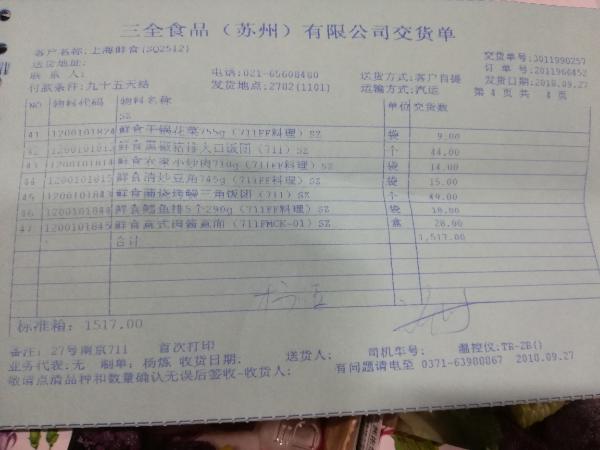 三全食品（苏州）有限公司交货单
客户名称:上海鲜食(SQ2512)
交货单号:3011990257
送货地址:
订 单 号:2011960452
联 系 人:
电话:021-65608480
送货方式:客户自提
发货日期:2018.09.27
付款条件:九十五天结
发货地点:2702(1101)
运输方式:汽运
第 4 页 共 4 页
NO 物料代码 物料名称 单位 交货数
SZ
41 1200101824 鲜食干锅花菜755g（711FF料理）SZ 袋 9.00
42 鲜食黑椒猪排大口饭团（711）SZ 个 44.00
43 鲜食农家小炒肉710g（711FF料理）SZ 袋 14.00
44 鲜食清炒豆角745g（711FF料理）SZ 袋 15.00
45 三角饭团（711）SZ 个 49.00
46 鲜食鳕鱼排5个290g（711FF料理）SZ 袋 18.00
47 1200101845 鲜食意式肉酱意面（711FMCK-01）SZ 盒 28.00
合计 1,517.00
标准箱: 1517.00
备注: 27号南京711 首次打印
送货人:
司机车号:
温控仪:TR-ZB()
业务代表:无 制单: 杨炼 收货日期:
有问题请电至 0371-63980867 2018.09.27
敬请点清品种和数量确认无误后签收-收货人: